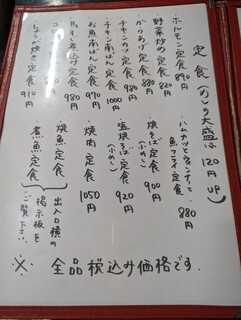 定食(めしの大盛は120円UP)
ホルモン定食 890円
野菜炒め定食 820円
からあげ定食 880円
チキンカツ定食 980円
チキン南ばん定食 1000円
お魚南ばん定食 970円
定食 980円
コロ
しょうが焼き定食 910円
・ハムカツとウィンナーと魚フライ定食 880円
・焼そば定食(小めし) 900円
・塩焼そば定食(小めし) 920円
・焼肉定食 1050円
・焼魚定食
・煮魚定食
出入口横の掲示板をご覧下さい。
※ 全品税込み価格です。